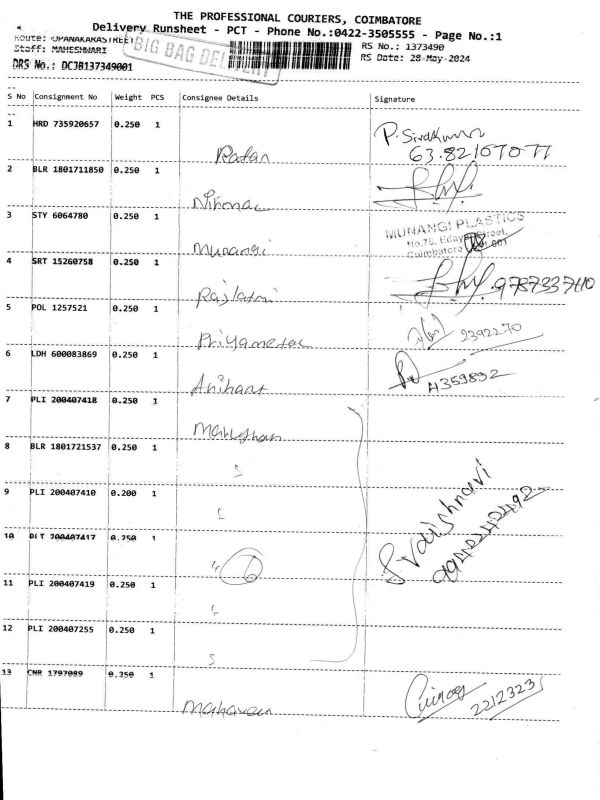 THE PROFESSIONAL COURIERS, COIMBATORE
Delivery Runsheet - PCT - Phone No.:0422-3505555 - Page No.:1
Route: OPANAKARASTREET
RS No.: 1373490
Staff: MAHESHWARI
RS Date: 28-May-2024
BIG BAG DELIVERY
DRS No.: DCJB137349001
S No Consignment No Weight PCS Consignee Details Signature
1 HRD 735920657 0.250 1
Ratan
P. Sivakumar
63.82167077
2 BLR 1801711850 0.250 1
3 STY 6064780 0.250 1
Munangi
MUNANGI PLASTICS
No.75, Edayar Street,
Coimbatore 001
4 SRT 15260758 0.250 1
9787337110
5 POL 1257521 0.250 1
9392270
6 LDH 600083869 0.250 1
Arihant
4359892
7 PLI 200407418 0.250 1
8 BLR 1801721537 0.250 1
9 PLI 200407410 0.200 1
10 PLI 200407417 0.250 1
Vaishnavi
9942242492
11 PLI 200407419 0.250 1
12 PLI 200407255 0.250 1
13 CNR 1797089 0.250 1
2212323